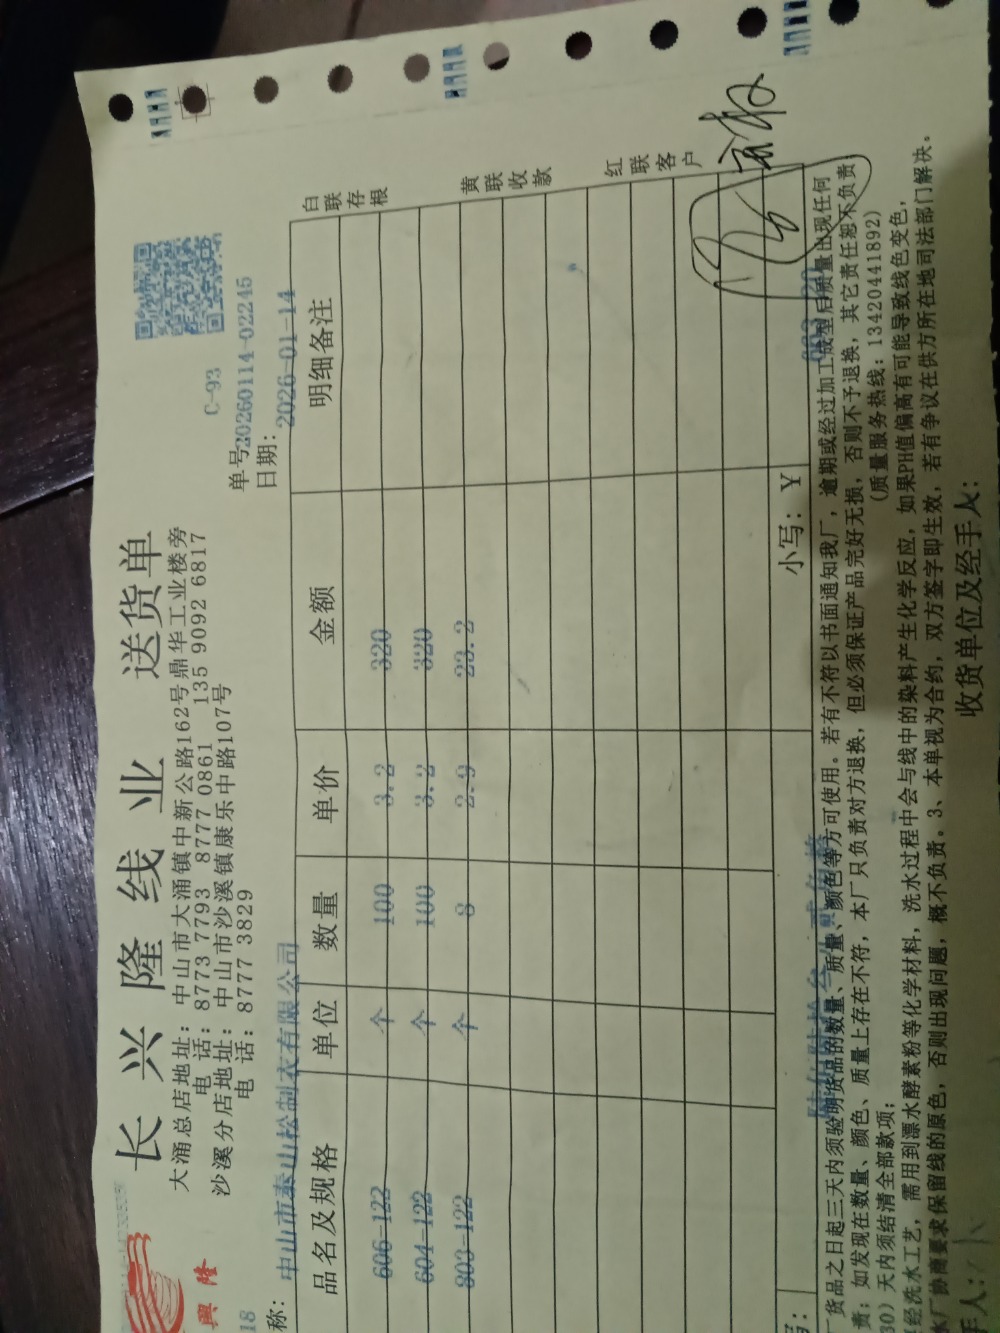 長興隆
长兴隆线业 送货单
C-93
大涌总店地址: 中山市大涌镇中新公路162号鼎华工业楼旁
电 话: 8773 7793 8777 0861 135 9092 6817
沙溪分店地址: 中山市沙溪镇康乐中路107号
电 话: 8777 3829
单号20260114-02245
日期: 2026-01-14
称: 中山市泰山松制衣有限公司
品名及规格 单位 数量 单价 金额 明细备注
606-122 个 100 3.2 320
604-122 个 100 3.2 320
803-122 个 8 2.9 23.2
白联存根
黄联收款
红联客户
小写: ¥ 663.20
货品之日起三天内须验明货品的数量、质量、颜色等方可使用。若有不符以书面通知我厂, 逾期或经过加工成型后质量出现任何
责; 如发现在数量、颜色、质量上存在不符, 本厂只负责对方退换, 但必须保证产品完好无损, 否则不予退换, 其它责任恕不负责
30) 天内须结清全部款项; (质量服务热线: 13420441892)
经洗水工艺, 需用到漂水酵素粉等化学材料, 洗水过程中会与线中的染料产生化学反应, 如果PH值偏高有可能导致线色变色,
水厂协商要求保留线的原色, 否则出现问题, 概不负责。3、本单视为合约, 双方签字即生效, 若有争议在供方所在地司法部门解决。
手人: 收货单位及经手人: